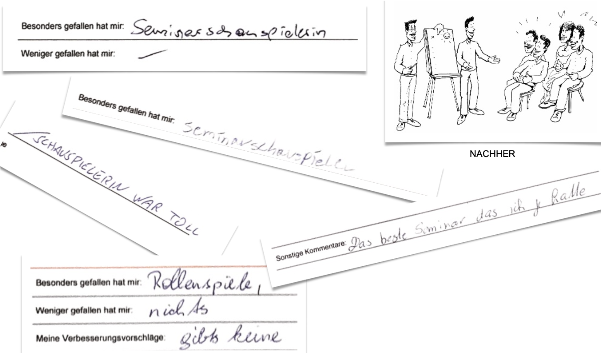 Besonders gefallen hat mir: Seminarschauspielerin
Weniger gefallen hat mir: —
Besonders gefallen hat mir: Seminarschauspieler
SCHAUSPIELERIN WAR TOLL
NACHHER
Sonstige Kommentare: Das beste Seminar das ich je hatte
Besonders gefallen hat mir: Rollenspiele,
Weniger gefallen hat mir: nichts
Meine Verbesserungsvorschläge: gibts keine